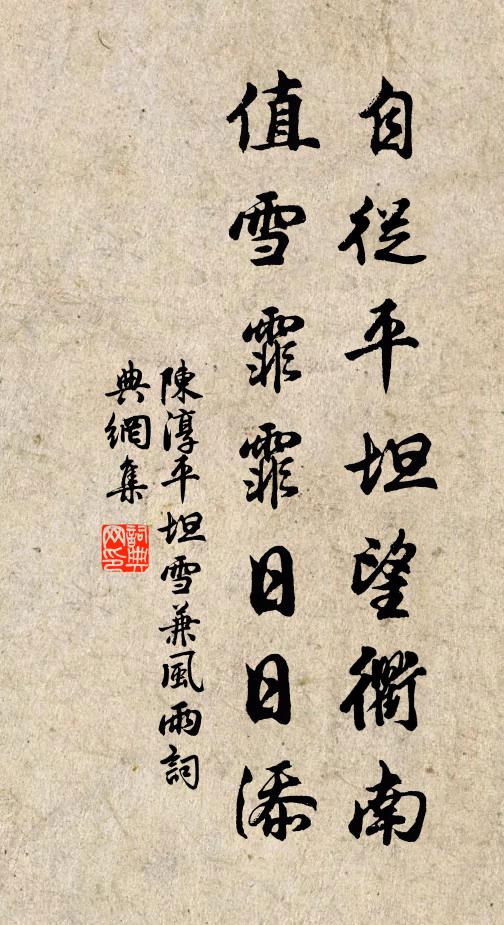 自從平坦望衢南
值雪霏霏日日添
陳淳平坦雪兼風雨詞
典網集
詞典
网印